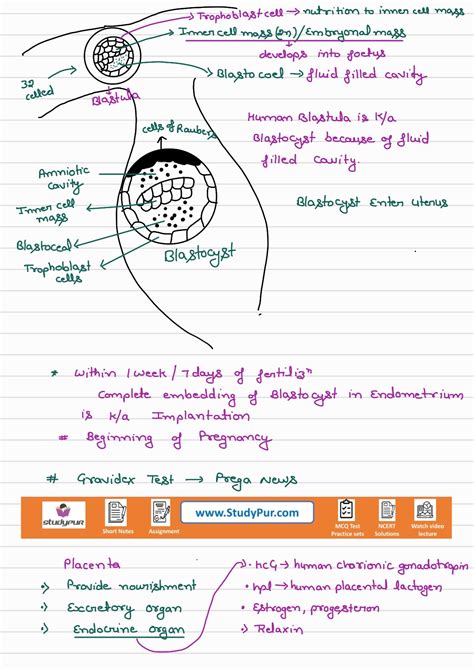 Trophoblast cell → nutrition to inner cell mass
Inner cell mass (or) / Embryonal mass
develops into foetus
Blastocoel → fluid filled cavity
32 celled
Blastula
cells of Raubers
Human Blastula is k/a
Blastocyst because of fluid
filled cavity.
Amniotic cavity
Inner cell mass
Blastocyst Enter uterus
Blastocoel
Trophoblast cells
Blastocyst
* Within 1 week / 7 days of fertiliz^n
Complete embedding of Blastocyst in Endometrium
is k/a Implantation
# Beginning of Pregnancy
# Gravidex Test → Prega News
studypur
Short Notes
Assignment
www.StudyPur.com
MCQ Test Practice sets
NCERT Solutions
Watch video lecture
Placenta
•) Provide nourishment
•) Excretory organ
•) Endocrine organ
• hcG → human chorionic gonadotropin
• hpl → human placental lactogen
• Estrogen, progesteron
• Relaxin